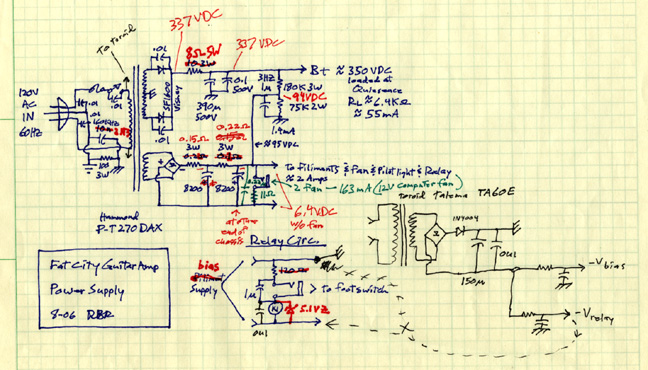 To toroid
337VDC
8Ω 5W
337VDC
B+ ≈ 350VDC
loaded at
Quiescence
RL ≈ 6.4KΩ
≈ 55mA
120V
AC
IN
60Hz
.01
.01
.01
.01
.01
390μ
500V
0.1
500V
3Hz
1μ
180K 3W
94VDC
75K 2W
1.4mA
≈95VDC
0.15Ω
3W
0.22Ω
3W
100
3W
8200
8200
11Ω
To Filiments & Fan & Pilot light & Relay
≈ 2 Amps
2 fan – 163mA (12V computer fan)
6.4VDC
w/o fan
at other
end of
chassis
Hammond
P-T270DAX
toroid Talema TA60E
1N4004
150μ
0u1
-Vbias
-Vrelay
Relay Circ.
bias
Supply
1μ
to footswitch
5.1VZ
0u1
Fat City Guitar Amp
Power Supply
8-06 RBR